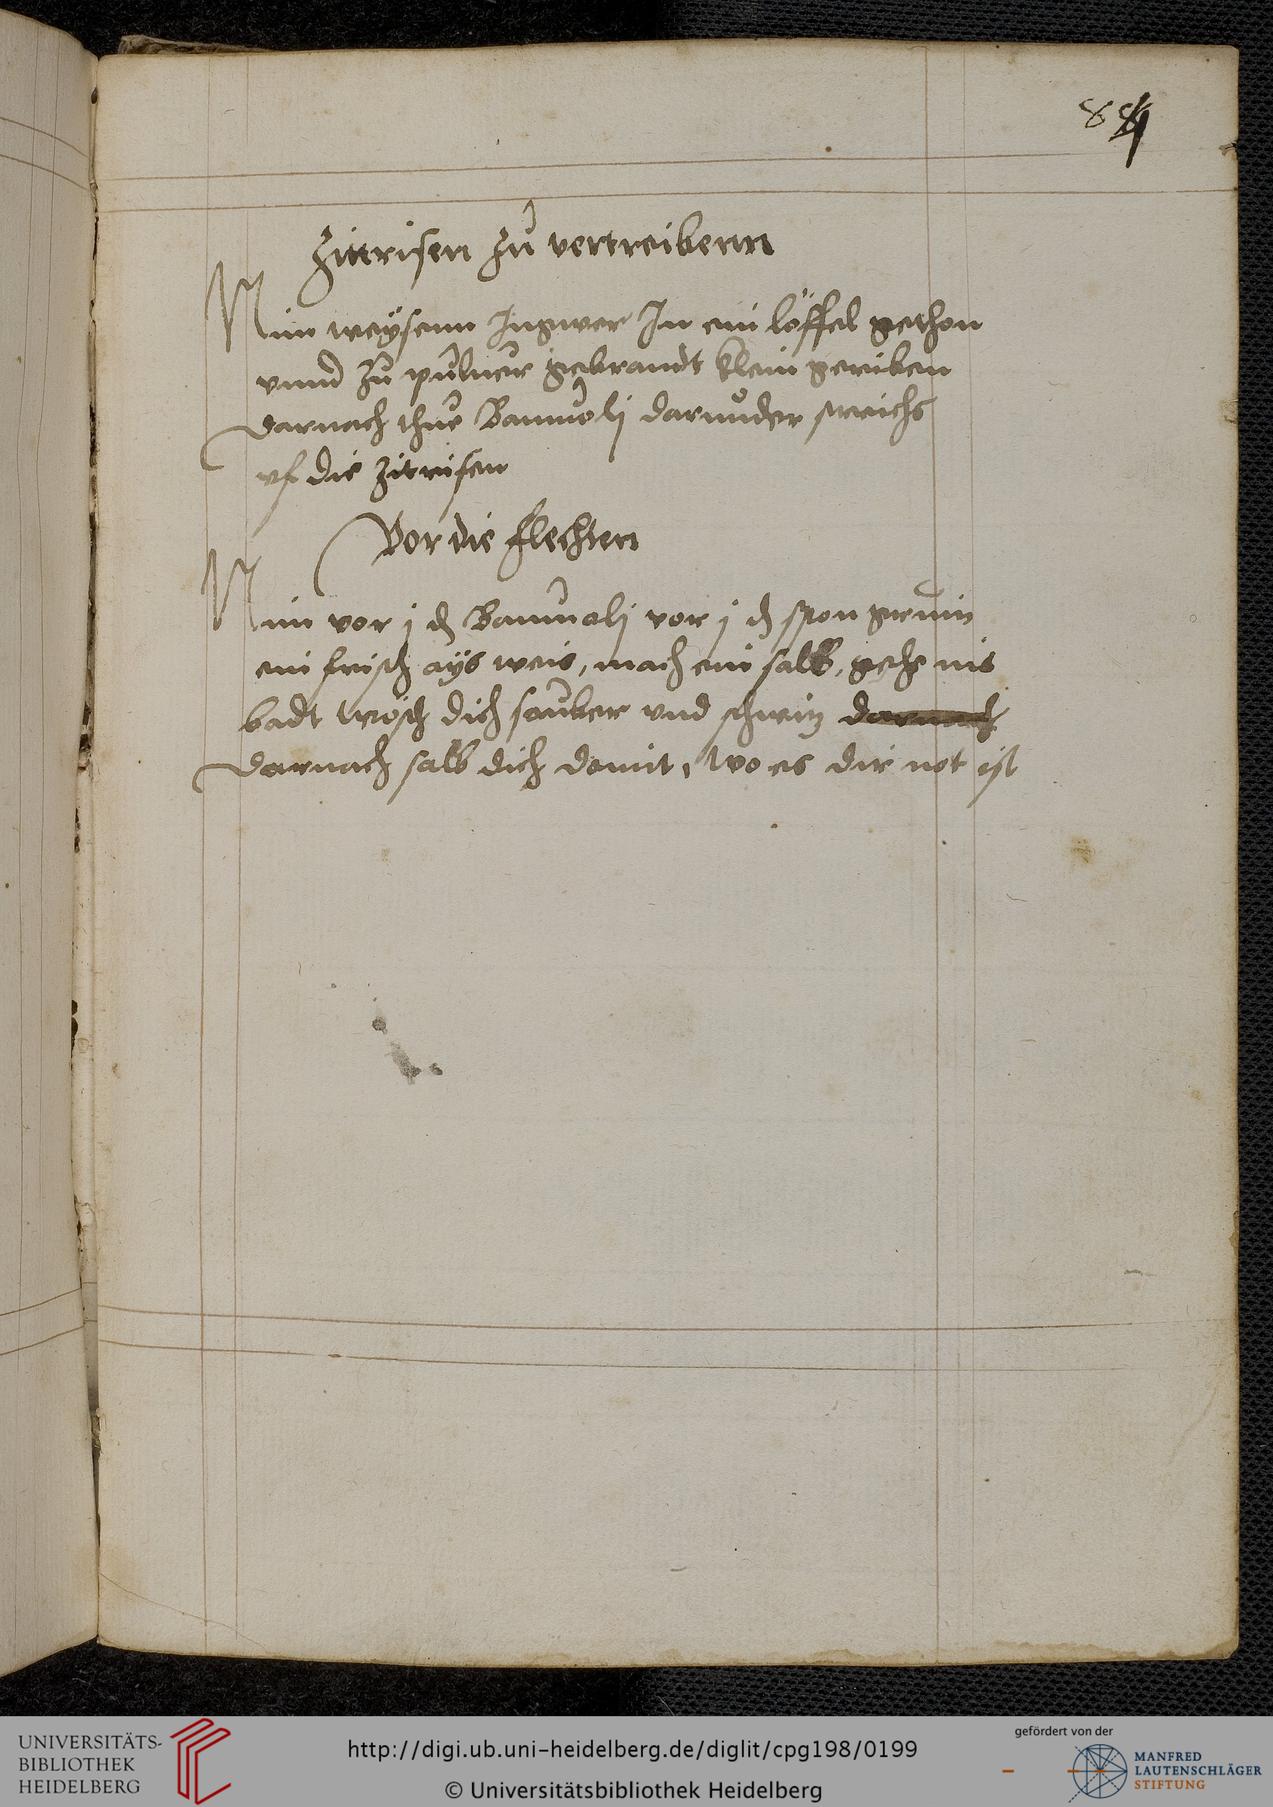 84
Zittrisen zu vertreibenn
Nim weyssenn Ingwer In ein löffel gethon
vnnd zu puluer gebrandt klein geriben
darnach thue Baumolj darunder streichs
vf die zitrisen
Vor die flechten
Nim vor j ₰ Baumolj vor j ₰ spon gruin
ein frisch ays weis, mach ein salb, gehe ins
badt wösch dich sauber vnd schwitz darnach
darnach salb dich domit, wo es dir not ist
UNIVERSITÄTS-
BIBLIOTHEK
HEIDELBERG
http://digi.ub.uni-heidelberg.de/diglit/cpg198/0199
© Universitätsbibliothek Heidelberg
gefördert von der
MANFRED
LAUTENSCHLÄGER
STIFTUNG